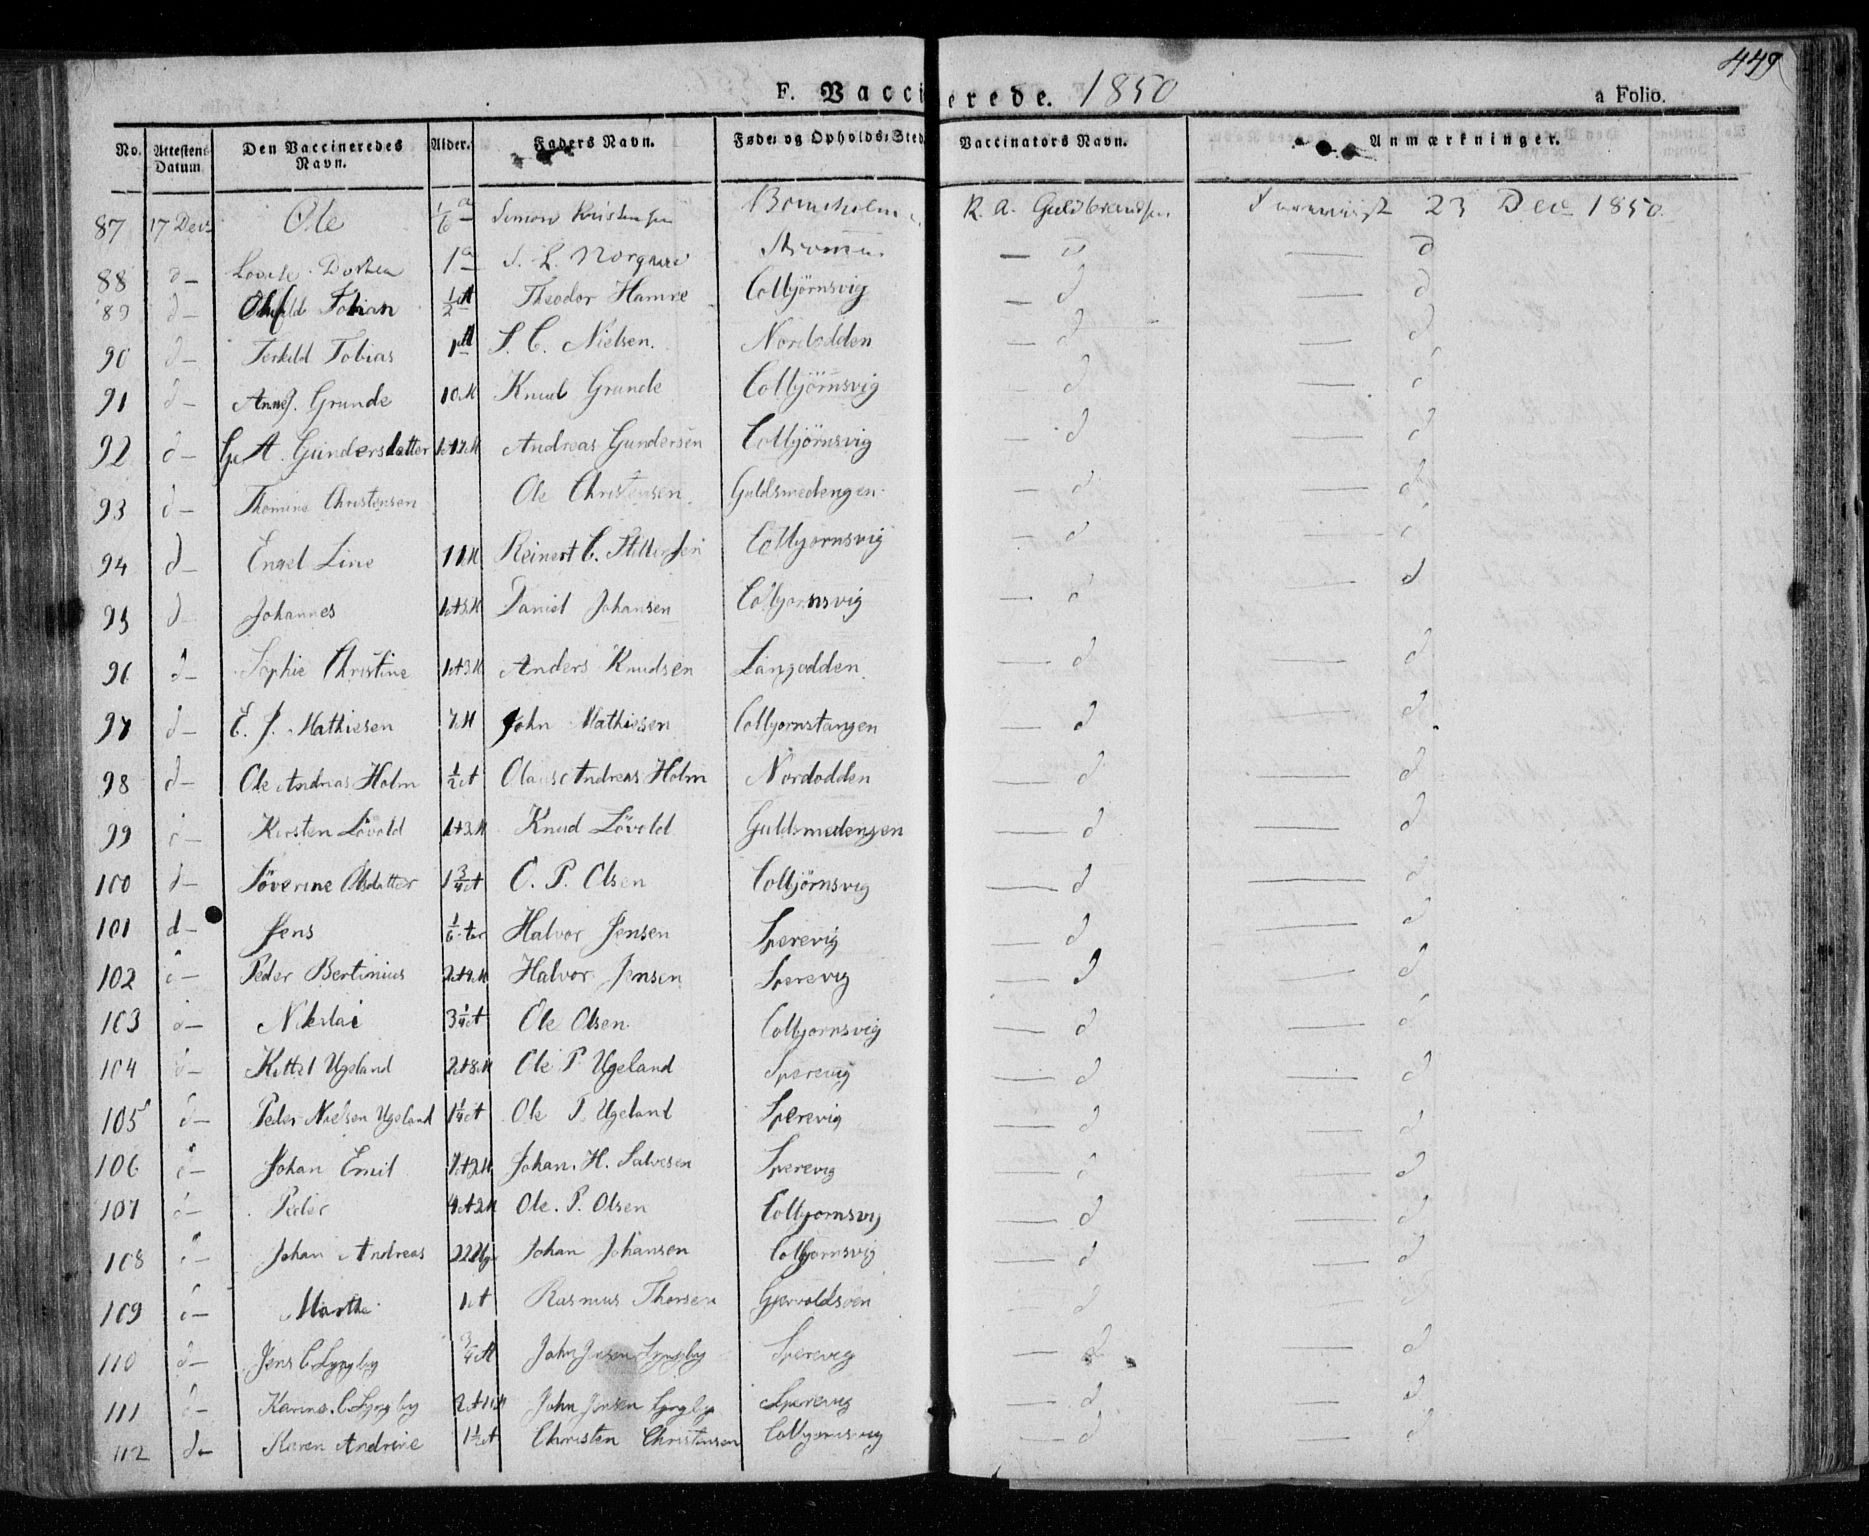 449
F. Vaccinerede. 1850 a Folio.
No. Attestens Datum. Den Vaccineredes Navn. Alder. Faders Navn. Føde- og Opholds-Sted Vaccinators Navn. Anmærkninger.
87 17 Decr Ole 1/6 a Simon Kristensen R. A. Guldbrandsen 23 Dec 1850.
88 d- Dorthea 1 a S. L. Norgaard — d — d
89 d- Tobian 1/2 A Theodor Hamre Colbjörnsvig — d — d
90 d- Terkild Tobias 1 A S. C. Nielsen. Nordodden — d — d
91 d- Grunde 10 M Knud Grunde Colbjörnsvig — d — d
92 d- A. Gundersdatter Andreas Gundersen Colbjörnsvig — d — d
93 d- Thomine Christensen Ole Christensen. Guldsmedengen — d — d
94 d- Engel Line 11 M Reinert C. Colbjornsvig — d — d
95 d- Johannes Daniel Johansen Colbjornsvig — d — d
96 d- Sophie Christine 1 A 3 M Anders Knudsen Langodden. — d — d
97 d- E. J. Mathiesen 7 M John Mathiesen Colbjornstangen — d — d
98 d- Ole Andreas Holm 1/2 A Olaus Andreas Holm Nordodden — d — d
99 d- Kirsten Lövold 1 A 3 M Knud Lövold Guldsmedengen — d — d
100 d- Söverine Olsdatter 1 3/4 A O. P. Olsen Colbjörnsvig — d — d
101 d- Jens 1/6 Halvor Jensen Sperevig — d — d
102 d- Peder Bertinius Halvor Jensen Sperevig — d — d
103 d- Nikolai 3 1/4 A Ole Olsen Colbjornsvig — d — d
104 d- Kittel Ugeland 2 A 8 M Ole P. Ugeland Sperevig — d — d
105 d- Peder Nielsen Ugeland 1 1/4 A Ole P. Ugeland Sperevig — d — d
106 d- Johan Emil Johan. H. Salvesen Sperevig — d — d
107 d- Peder 4 A 2 M Ole. P. Olsen Colbjornsvig — d — d
108 d- Johan Andreas 22 Uger Johan Johansen Colbjornsvig — d — d
109 d- Marthe 1 A Rasmus Thorsen Gjervoldsöen — d — d
110 d- Jens C Lyngby 3/4 A John Jensen Lyngby Sperevig — d — d
111 d- Karine. C Lyngby 2 A 11 M John Jensen Lyngby Sperevig — d — d
112 d- Karen Andrine 1 1/2 A Christen Christensen Colbjornsvig — d — d